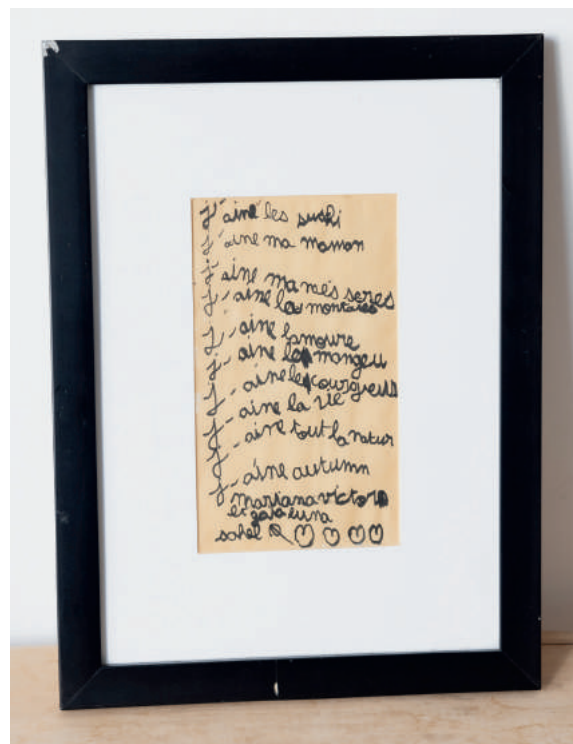 j'aine les sushi
j'aine ma maman
j'aine ma mes seres
j'aine la
j'aine lamoure
j'aine la mangeu
j'aine les courgeus
j'aine la vie
j'aine tout la natur
j'aine autumn
mariana victor
et gaia luna
sohel